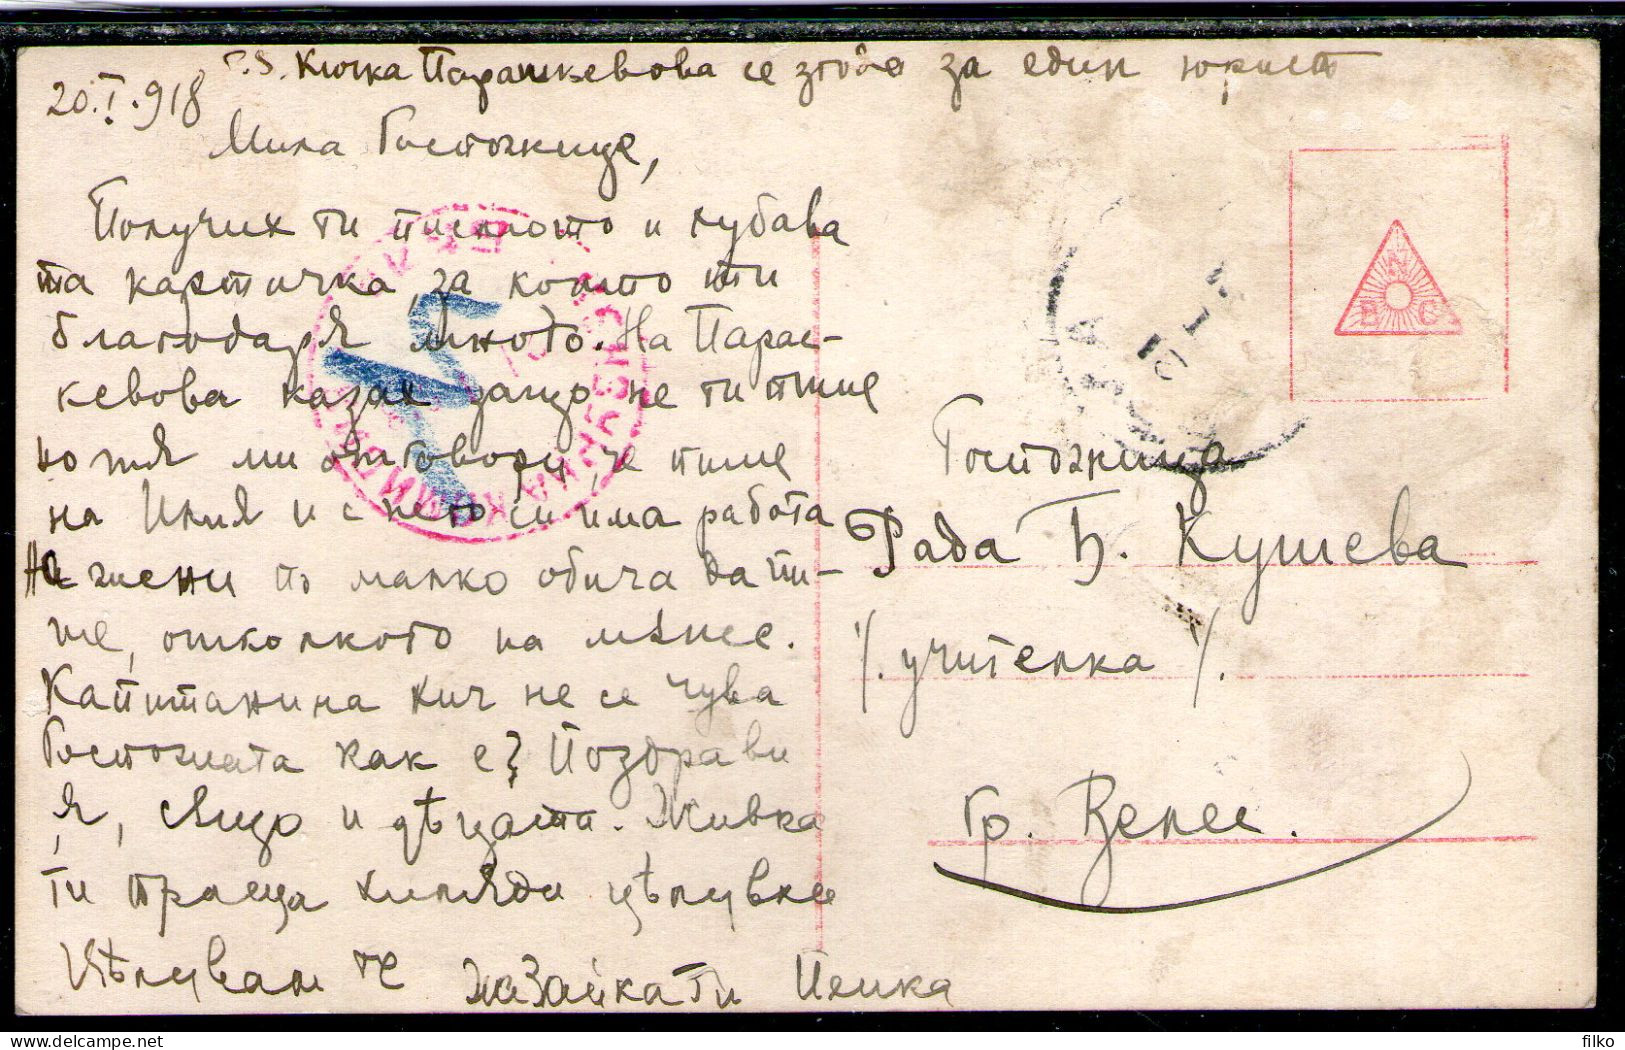 P.S. Кичка Парашкевова се згоди за един юрист
20.I.918
Мила Госпожице,
Получих ти писмото и хубава
та картичка, за които ти
благодаря много. На Парас-
кевова казах защо не ти пише
но тя ми отговори, че пише
на Илия и с него си има работа
На жени по малко обича да пи-
ше, отколкото на мѫже.
Капитанина хич не се чува
Госпожата как е? Поздрави
я, също и дѣцата. Живка
ти праща хиляди цѣлувки
Цѣлувам те Зайката ти Пенка
NBG
Госпожица
Рада Ђ. Кушева
/. учителка /.
гр. Велес.
filko